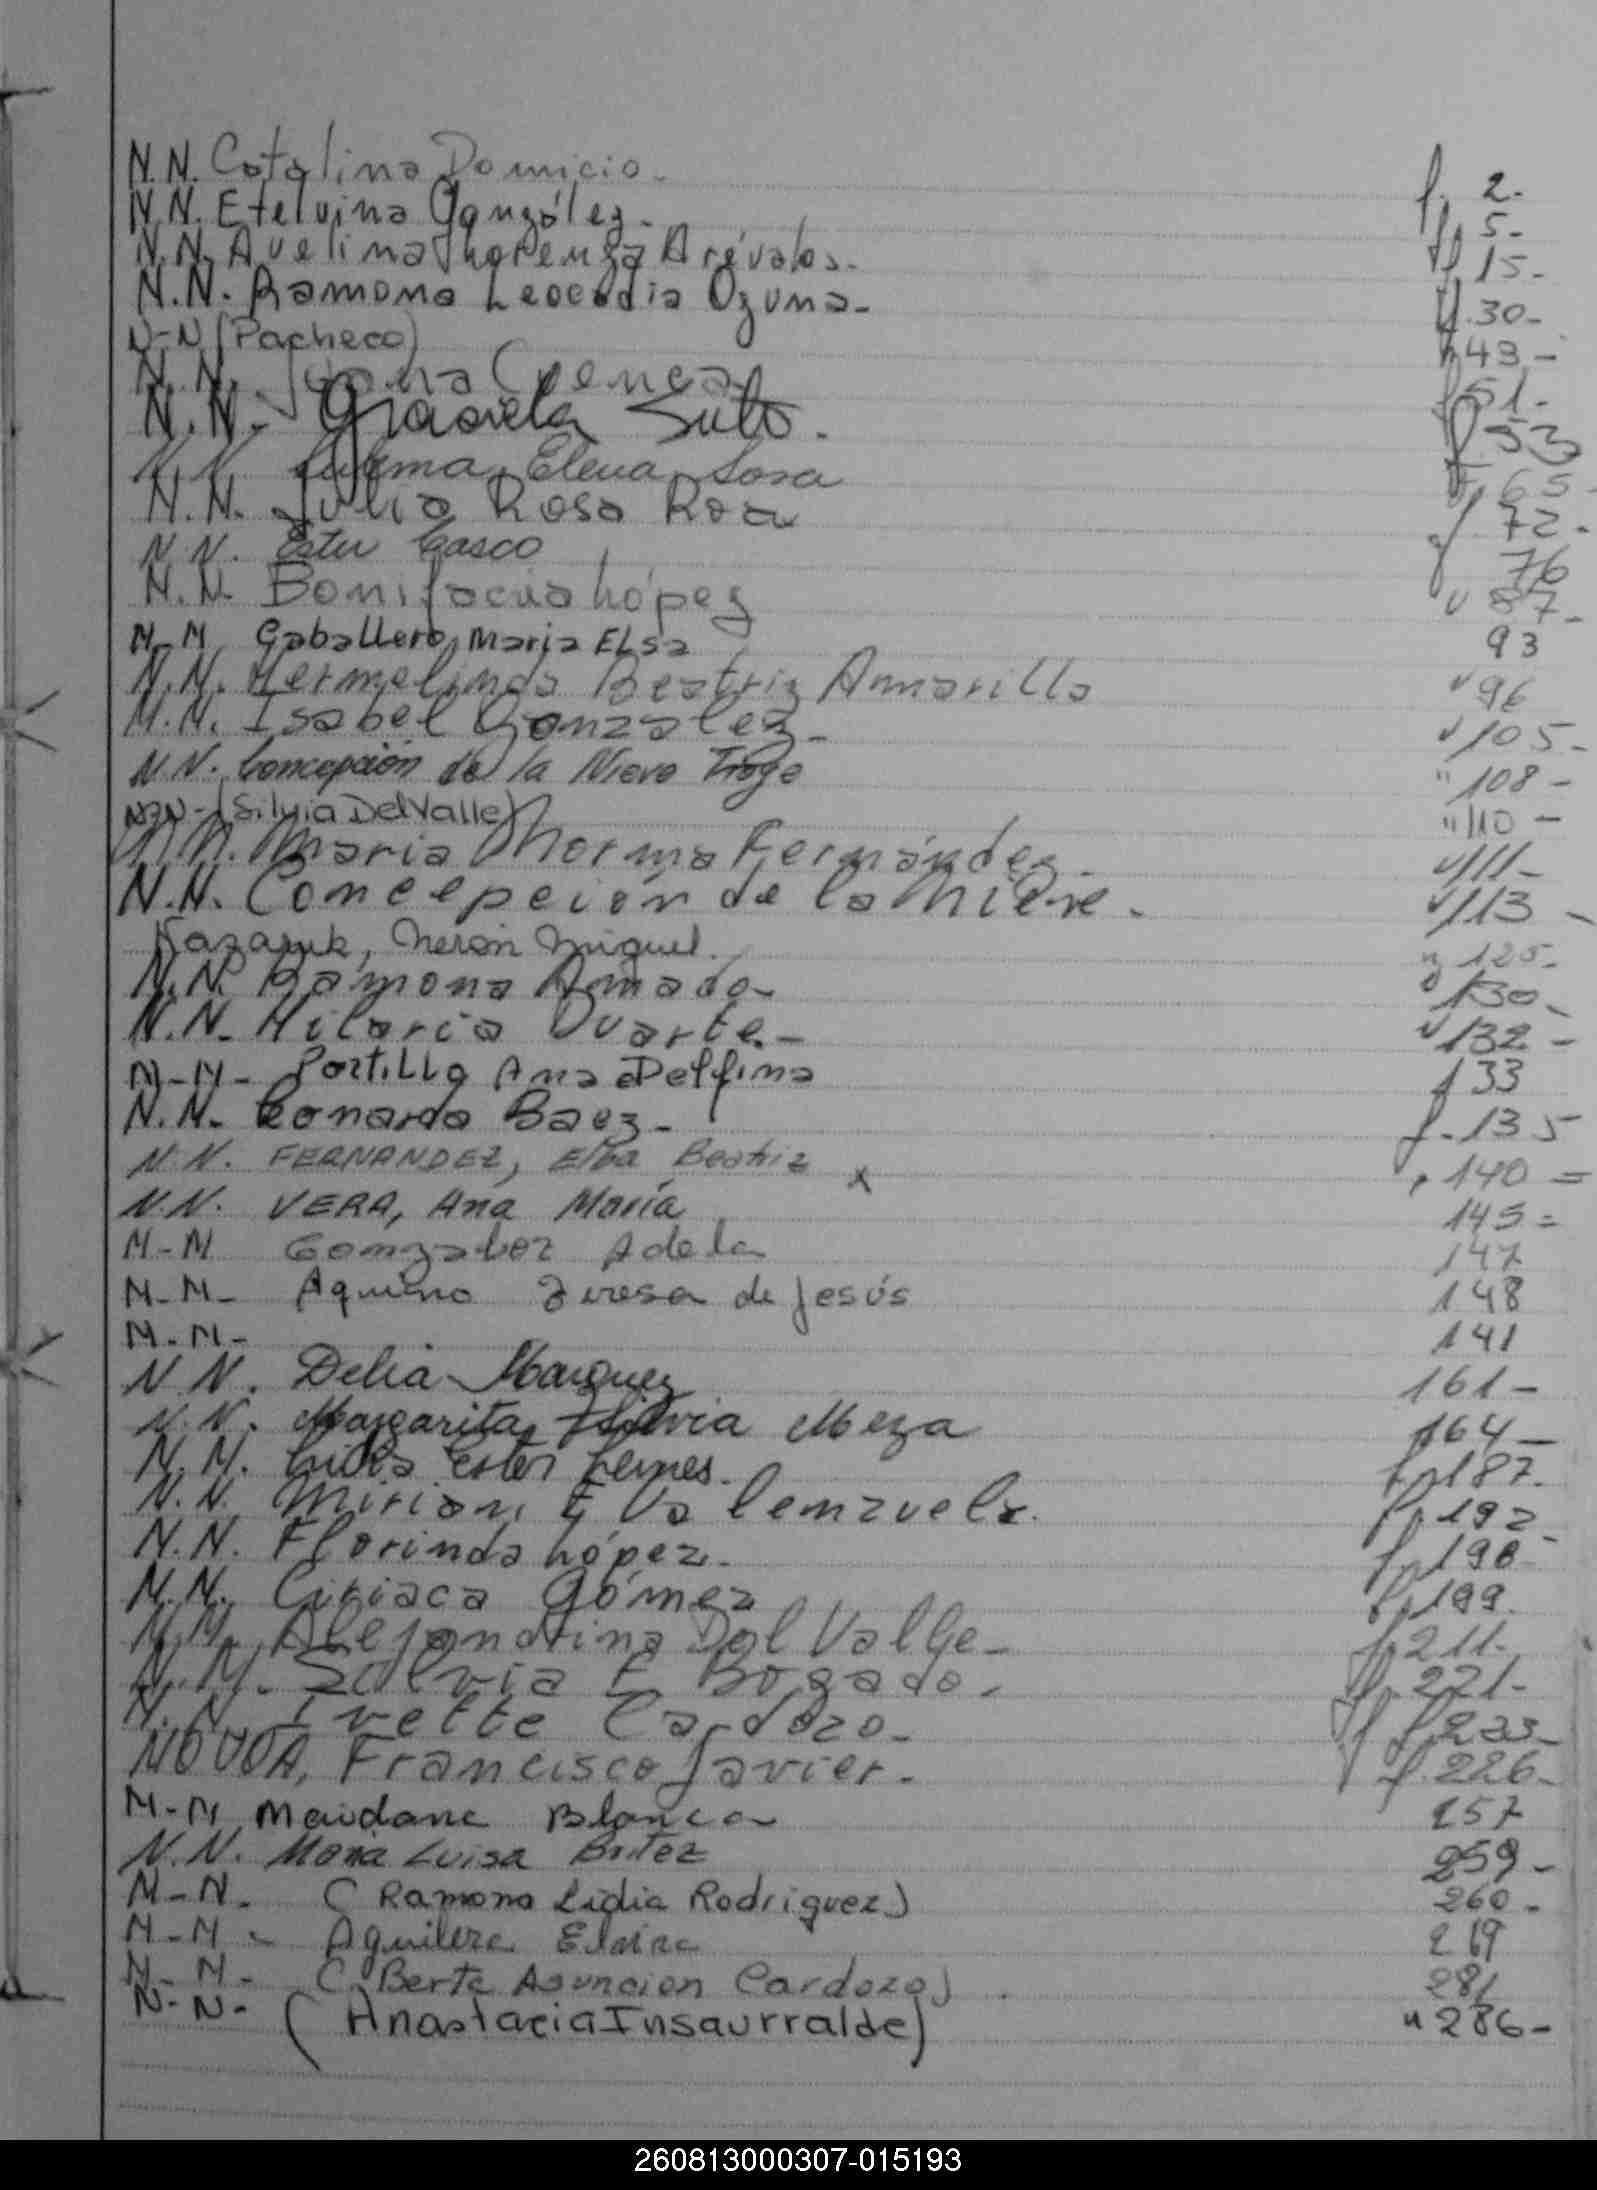 N.N. Catalina Domicio. f. 2.
N.N. Etelvina González. f. 5.
N.N. Avelina Lhorenza Arévalos. f. 15.
N.N. Ramona Leocadia Ozuna. f. 30-
N-N (Pacheco) 43-
N.N. Juana Cuenca. f 51.
N.N. Graciela Suto. f. 53
N.N. Elena Sosa f. 65.
N.N. Julia Rosa Roa f. 72.
N.N. Ester Gasco f 76
N.N. Bonifacia López " 87-
N-N Caballero, Maria ELsa 93
N.N. Hermelinda Beatriz Amarilla " 96
N.N. Isabel Gonzalez. " 105-
N.N. Concepción de la Nieve " 108-
N-N- (Silvia Del Valle) " 110-
N.N. Maria Norma Fernández. " 111-
N.N. Concepción de la Nieve. " 113-
Nerón Miguel. " 125-
N.N. Ramona Amado- " 130-
N.N- Hilaria Duarte.- " 132-
N-N- Portillo Ana Delfina 133
N.N. Leonarda Baez- f. 135
N.N. FERNANDEZ, Elba Beatriz x " 140=
N.N. VERA, Ana María 145=
N-N Gonzalez Adela 147
N-N- Aquino Teresa de Jesús 148
N-N- 141
N.N. Delia Marquez 161-
N.N. Margarita Silvia Meza 164-
N.N. Ester f. 187.
N.N. Mirian, E Valenzuela. f. 192
N.N. Florinda López. f. 198
N.N. Ciriaca Gómez f. 199.
N.N. Alejandrina Del Valle- f. 211-
N.N. Silvia E Bogado. f. 221-
N.N. Ivette Cardozo- f. 223-
NOVOA, Francisco Javier. f. 226-
N-N Maidana Blanca 257
N.N. María Luisa Britez 259-
N-N. (Ramona Lidia Rodriguez) 260-
N-N- Aguilera Elvira 269
N-N- (Berta Asuncion Cardozo) 281
N-N- (Anastacia Insaurralde) " 286-
260813000307-015193